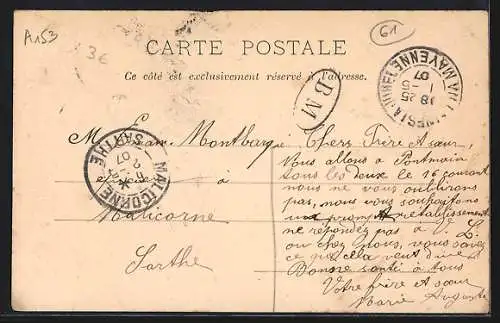 A153
3€
61
CARTE POSTALE
Ce côté est exclusivement réservé à l'adresse.
BM
MAYENNE
18 25
1 -5
07
MALICORNE
SARTHE
07
M. Montbar
à
Malicorne
Sarthe
Chers Frère & sœur,
Nous allons à Pontmain
tous les deux le 16 courant
nous ne vous oublirons
pas, nous vous souhaitons
un prompt rétablissement
ne répondez pas à V. L.
ou chez nous, vous savez
ce que cella veut dire
Bonne santé à tous
Votre frère et sœur
Marie Auguste